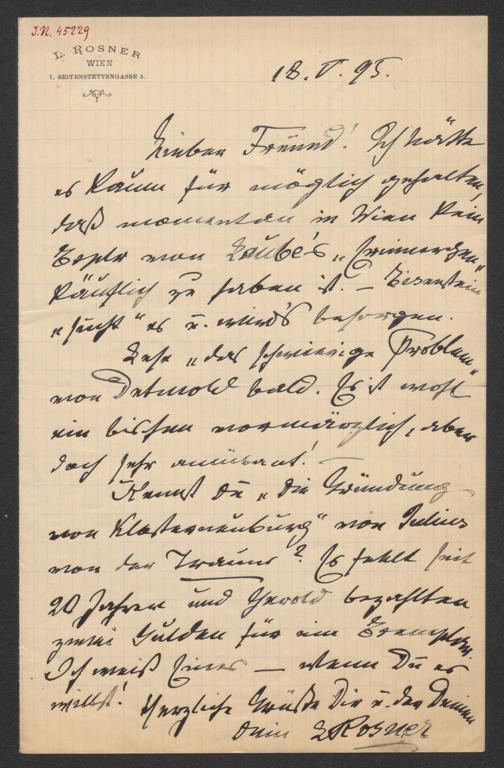 J.N. 45229
L. ROSNER
WIEN
I. SEITENSTETTENGASSE 5.
18. V. 95.
Lieber Freund! Ich hätte
es kaum für möglich gehalten,
daß momentan in Wien kein
Explr von Laube's „Erinnerungen"
käuflich zu haben ist. – Eisenstein
„sucht" es u. wird's besorgen.
Lese „das schwierige Problem"
von Detmold bald. Es ist wohl
ein bischen vormärzlich, aber
doch sehr amüsant! –
Kennst Du „die Gründung
von Klosterneuburg" von Julius
von der Traun? Es fehlt seit
20 Jahren und Gerold bezahlten
zwei Gulden für ein Exemplar.
Ich weiß Eines – wenn Du es
willst!
Herzliche Grüße Dir u. den Deinen
Dein LRosner